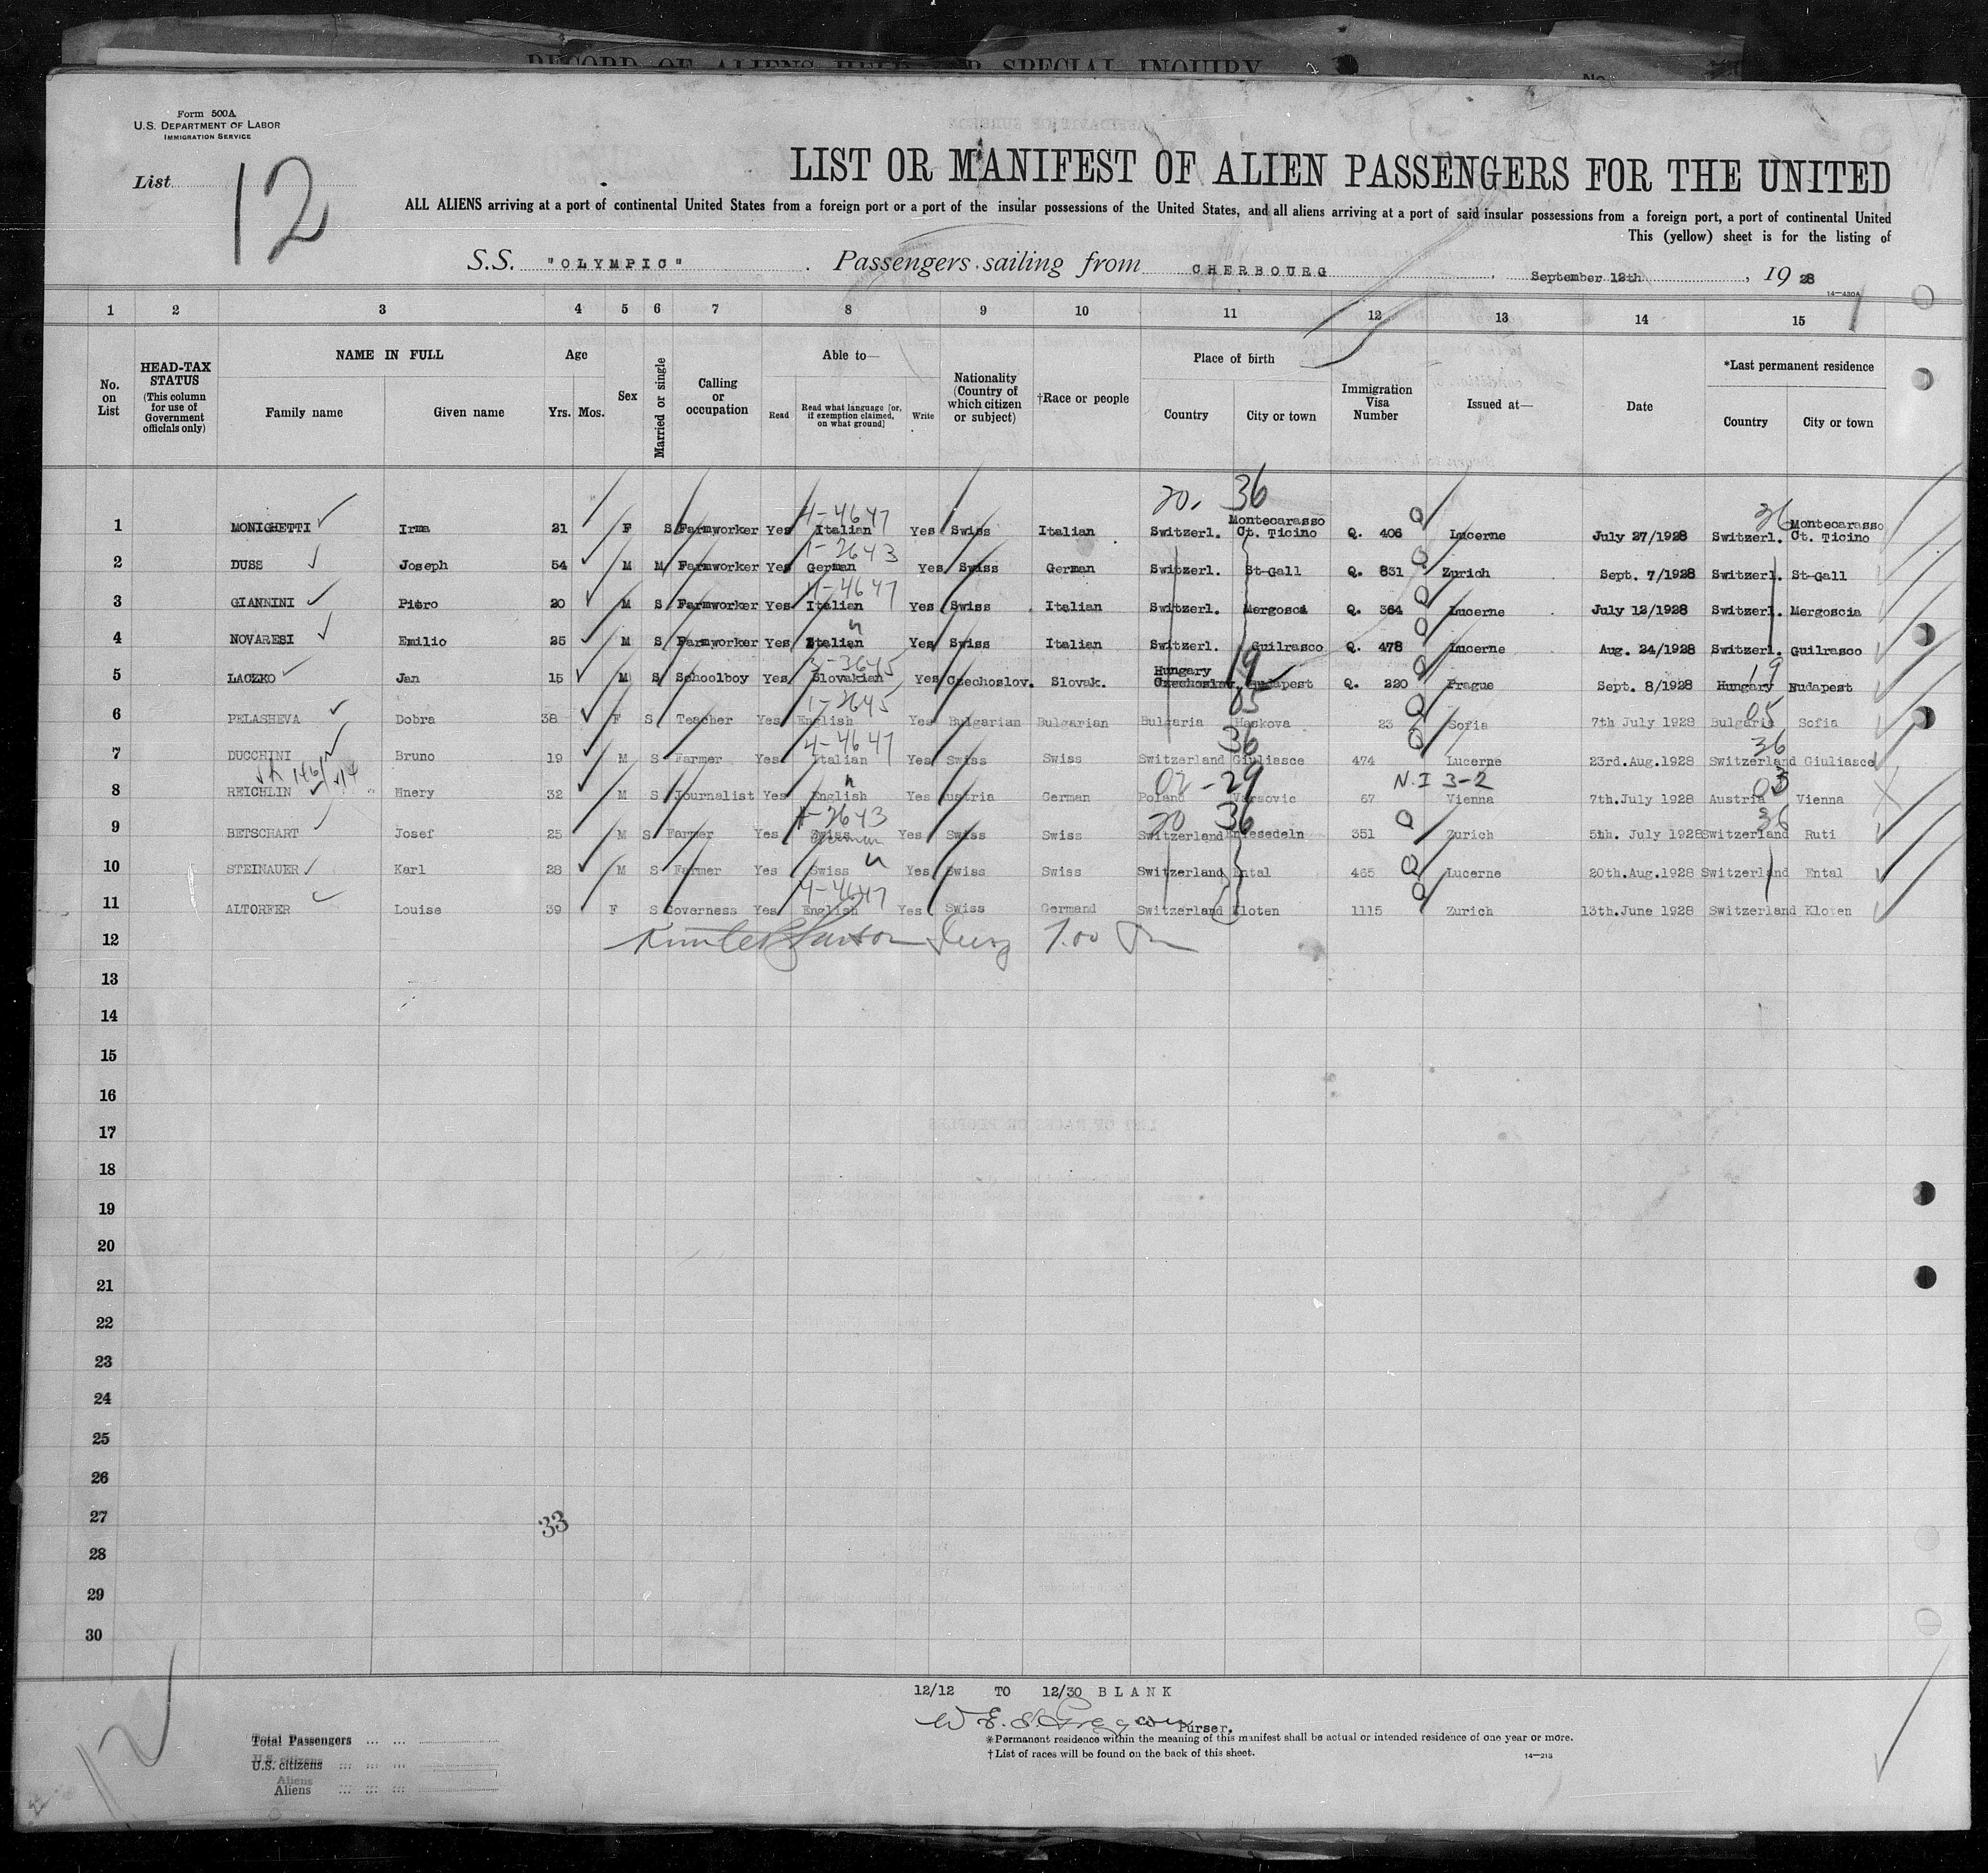 RECORD OF ALIENS HELD FOR SPECIAL INQUIRY
No.
Form 500A
U.S. DEPARTMENT OF LABOR
IMMIGRATION SERVICE
List 12
LIST OR MANIFEST OF ALIEN PASSENGERS FOR THE UNITED
ALL ALIENS arriving at a port of continental United States from a foreign port or a port of the insular possessions of the United States, and all aliens arriving at a port of said insular possessions from a foreign port, a port of continental United
This (yellow) sheet is for the listing of
S.S. "OLYMPIC" Passengers sailing from CHERBOURG, September 12th, 19 28
14—430A
1 2 3 4 5 6 7 8 9 10 11 12 13 14 15
No. on List
HEAD-TAX STATUS (This column for use of Government officials only)
NAME IN FULL
Family name
Given name
Age
Yrs. Mos.
Sex
Married or single
Calling or occupation
Able to—
Read
Read what language [or, if exemption claimed, on what ground]
Write
Nationality (Country of which citizen or subject)
†Race or people
Place of birth
Country
City or town
Immigration Visa Number
Issued at—
Date
*Last permanent residence
Country
City or town
20. 36
4-4647 36
1 MONIGHETTI Irma 21 F S Farmworker Yes Italian Yes Swiss Italian Switzerl. Montecarasso Ct. Ticino Q. 406 Lucerne July 27/1928 Switzerl. Montecarasso Ct. Ticino
1-2643
2 DUSS Joseph 54 M M Farmworker Yes German Yes Swiss German Switzerl. St-Gall Q. 831 Zurich Sept. 7/1928 Switzerl. St-Gall
4-4647
3 GIANNINI Pietro 20 M S Farmworker Yes Italian Yes Swiss Italian Switzerl. Mergosci Q. 364 Lucerne July 12/1928 Switzerl. Mergoscia
"
4 NOVARESI Emilio 25 M S Farmworker Yes Italian Yes Swiss Italian Switzerl. Guilrasco Q. 478 Lucerne Aug. 24/1928 Switzerl. Guilrasco
3-3645 19 19
5 LACZKO Jan 15 M S Schoolboy Yes Slovakian Yes Czechoslov. Slovak. Hungary Czechoslov. Budapest Q. 220 Prague Sept. 8/1928 Hungary Budapest
1-2645 05 05
6 PELASHEVA Dobra 38 F S Teacher Yes English Yes Bulgarian Bulgarian Bulgaria Haskova 23 Sofia 7th July 1928 Bulgaria Sofia
4-4647 36 36
7 DUCCHINI Bruno 19 M S Farmer Yes Italian Yes Swiss Swiss Switzerland Giuliasce 474 Lucerne 23rd.Aug.1928 Switzerland Giuliasce
" 02-29 N.I 3-2 03
8 REICHLIN Hnery 32 M S Journalist Yes English Yes Austria German Poland Varsovic 67 Vienna 7th.July 1928 Austria Vienna
1-2643 20 36 36
9 BETSCHART Josef 25 M S Farmer Yes Swiss German Yes Swiss Swiss Switzerland Eniesedeln 351 Zurich 5th. July 1928 Switzerland Ruti
"
10 STEINAUER Karl 28 M S Farmer Yes Swiss Yes Swiss Swiss Switzerland Ental 465 Lucerne 20th.Aug.1928 Switzerland Ental
4-4647
11 ALTORFER Louise 39 F S Governess Yes English Yes Swiss Germand Switzerland Kloten 1115 Zurich 13th.June 1928 Switzerland Kloten
12
13
14
15
16
17
18
19
20
21
22
23
24
25
26
27
33
28
29
30
12/12 TO 12/30 BLANK
Purser.
Total Passengers
U.S. citizens
Aliens
*Permanent residence within the meaning of this manifest shall be actual or intended residence of one year or more.
†List of races will be found on the back of this sheet.
14—213
12